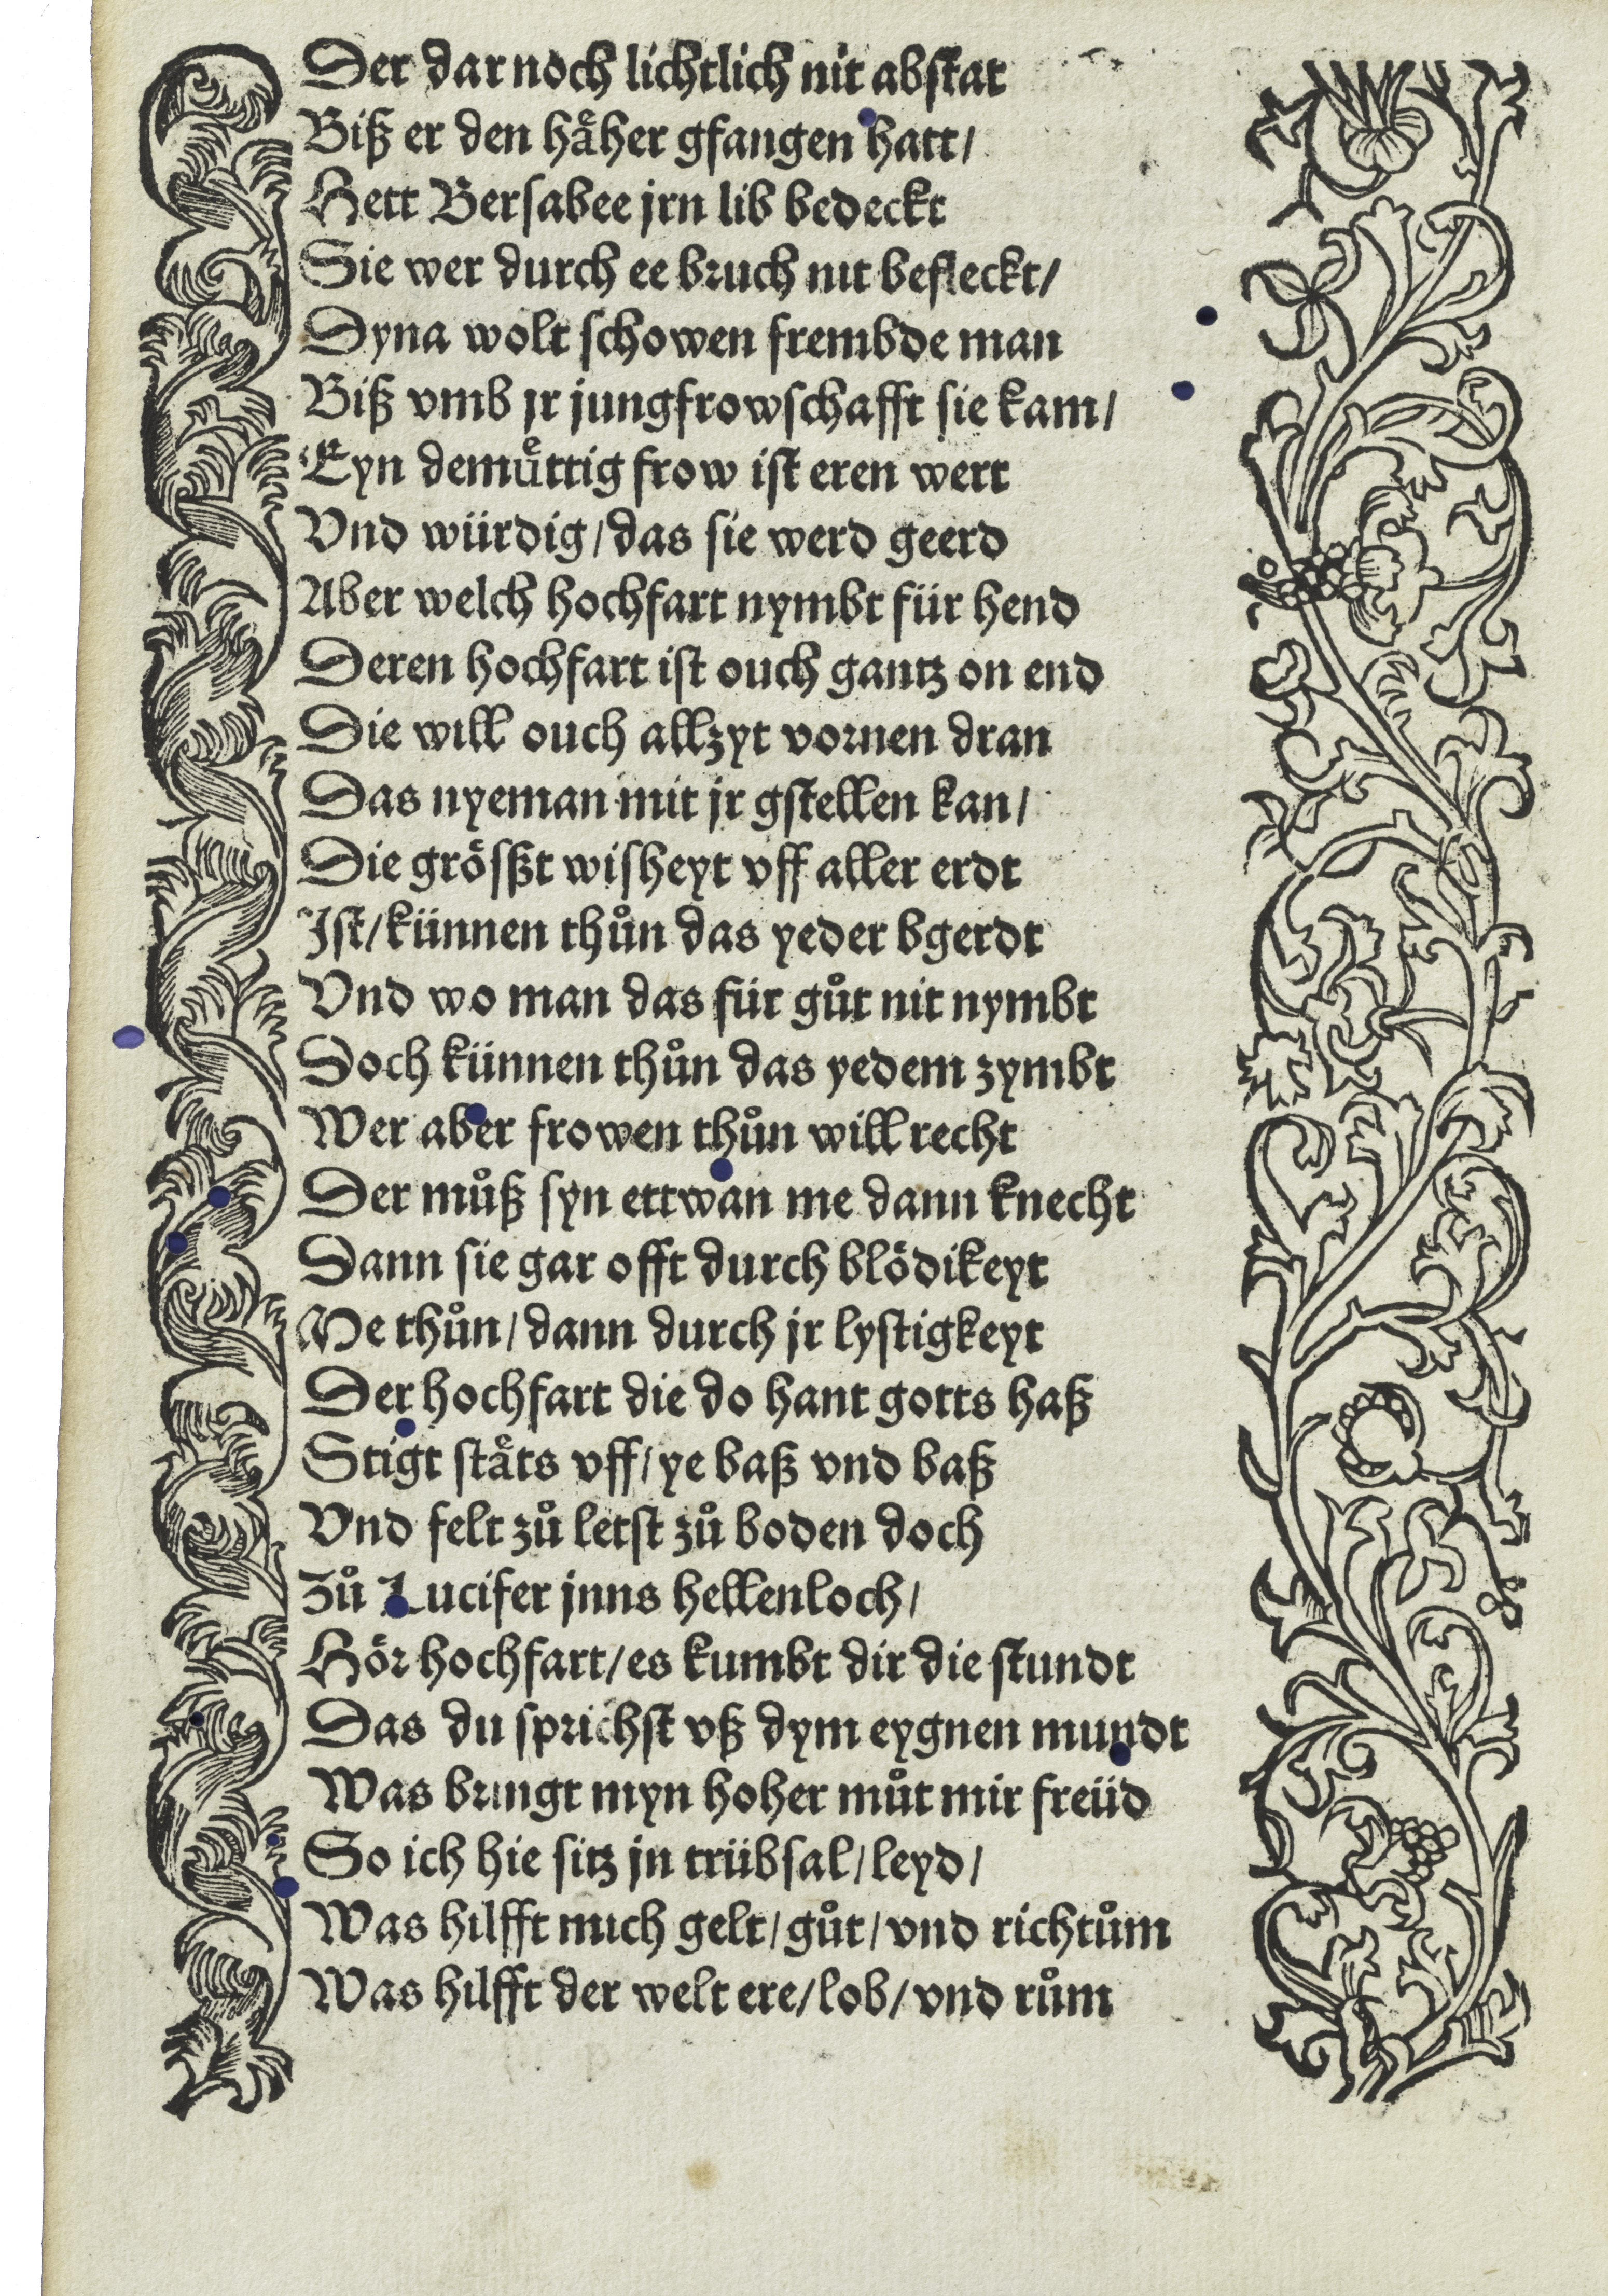 Der dar noch lichtlich nit abstat
Biß er den haͤher gfangen hatt/
Hett Bersabee jrn lib bedeckt
Sie wer durch ee bruch nit befleckt/
Dyna wolt schowen frembde man
Biß vmb jr jungfrowschafft sie kam/
Eyn demuͤttig frow ist eren wert
Vnd würdig/das sie werd geerd
Aber welch hochfart nymbt für hend
Deren hochfart ist ouch gantz on end
Die will ouch allzyt vornen dran
Das nyeman mit jr gstellen kan/
Die größt wisheyt vff aller erdt
Ist/künnen thůn das yeder bgerdt
Vnd wo man das für gůt nit nymbt
Doch künnen thůn das yedem zymbt
Wer aber frowen thůn will recht
Der můß syn ettwan me dann knecht
Dann sie gar offt durch blödikeyt
Me thůn/dann durch jr lystigkeyt
Der hochfart die do hant gotts haß
Stigt staͤts vff/ye baß vnd baß
Vnd felt zů letst zů boden doch
Zů Lucifer jnns hellenloch/
Hör hochfart/es kumbt dir die stundt
Das du sprichst vß dym eygnen mundt
Was bringt myn hoher můt mir freüd
So ich hie sitz jn trübsal/leyd/
Was hilfft mich gelt/gůt/vnd richtům
Was hilfft der welt ere/lob/vnd rům